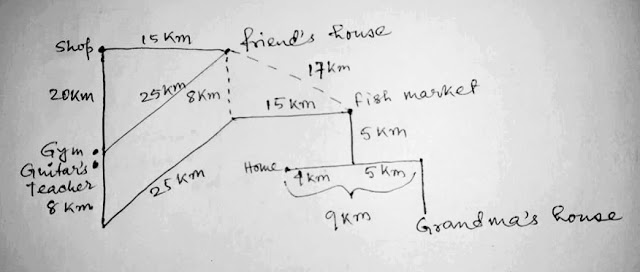 15 Km
Shop
friend's house
17km
20Km
25Km
8Km
15 Km
fish market
5 Km
Gym
Guitar's
Teacher
8 Km
25 Km
Home
4 Km
5 Km
9 Km
Grandma's house